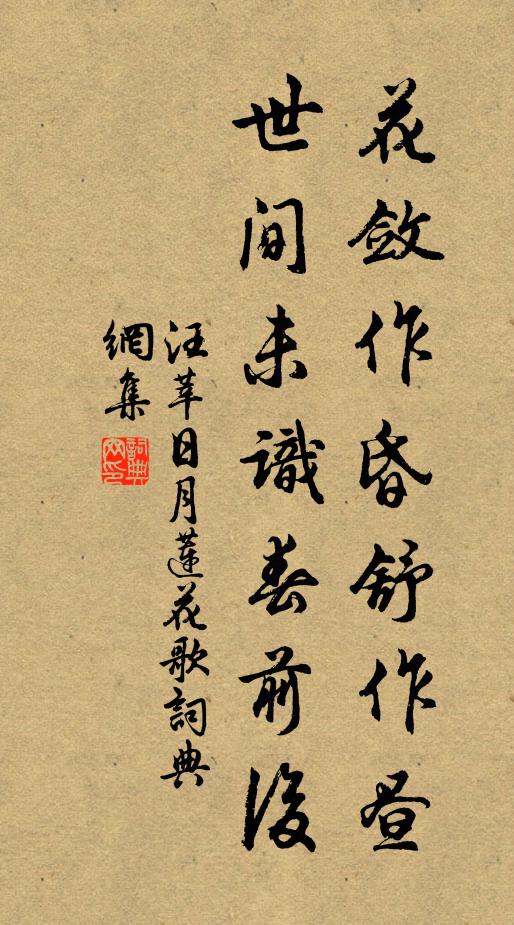 花斂作昏舒作晝
世間未識春前後
汪莘日月蓮花歌詞典
網集
詞典網印